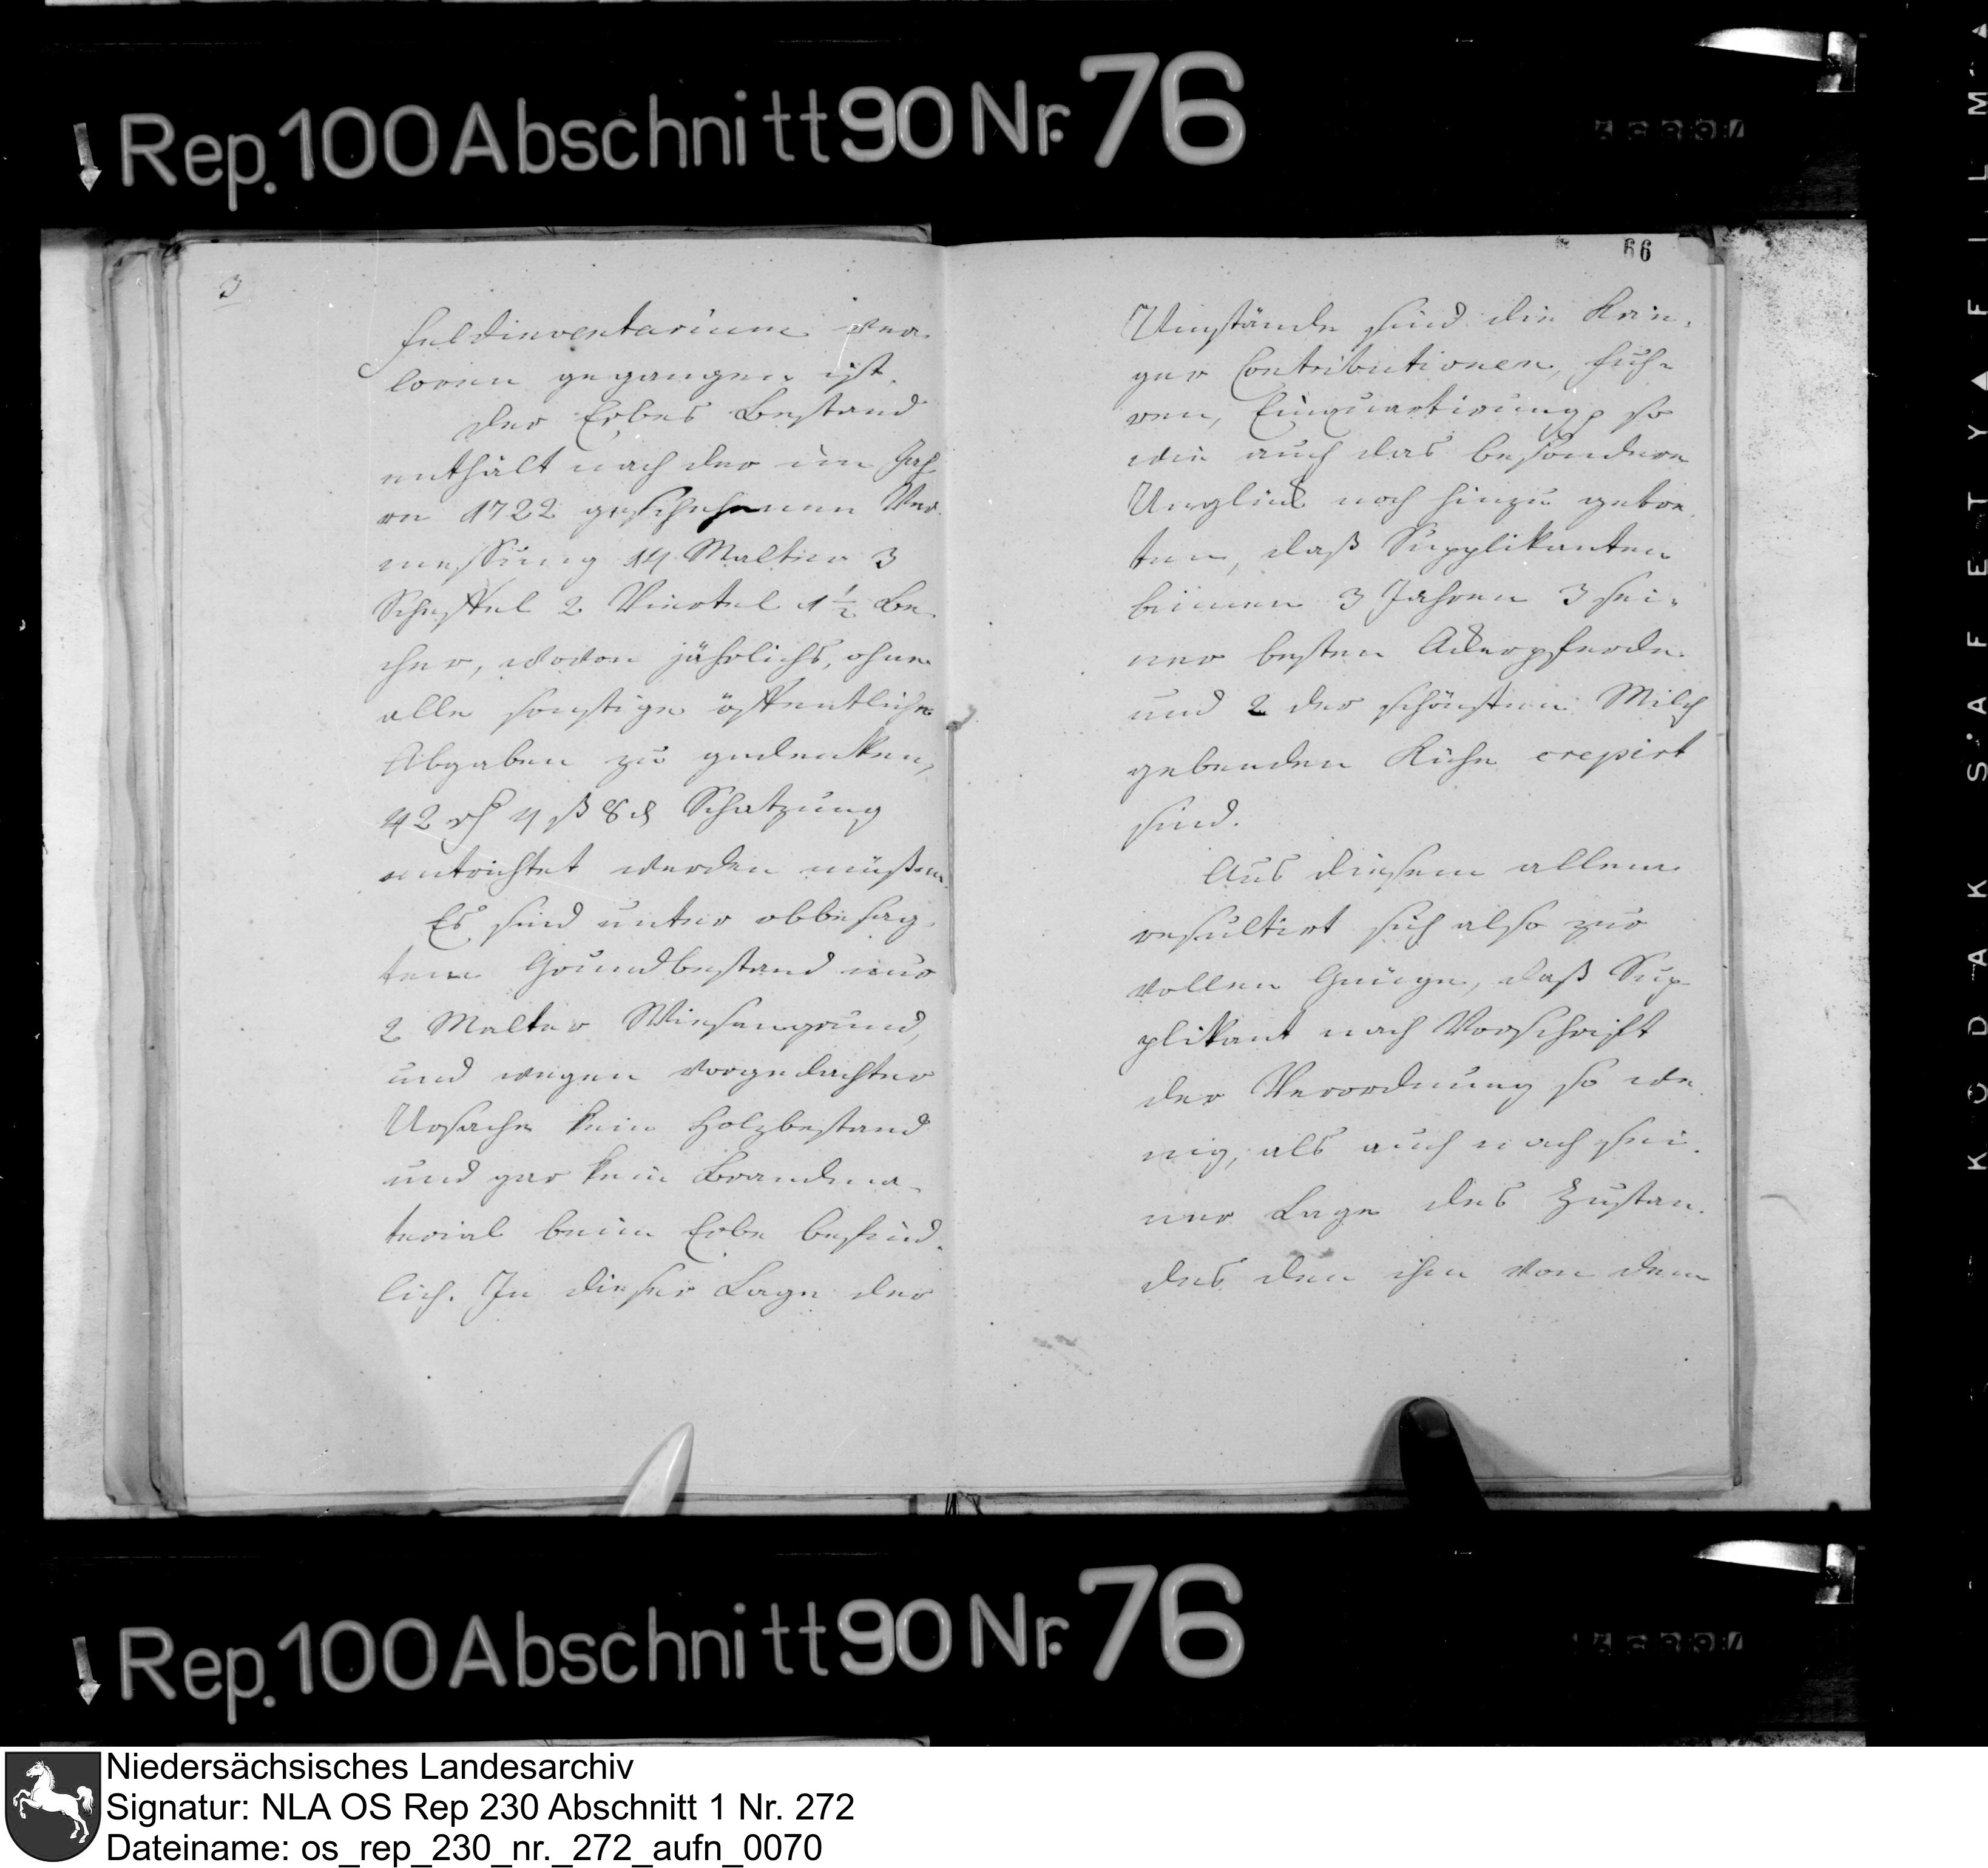 Rep. 100 Abschnitt 90 Nr. 76
3
Feldinventarium ver-
loren gegangen ist.
Der Erbes Bestand
enthält nach der im Jah
re 1722 geschehenen Ver-
messung 14 Malter 3
Scheffel 2 Viertel 1 1/2 Be-
cher, wovon jährlichs, ohne
alle sonstige öffentliche
Abgaben zu gedenken,
42 rh 4 ß 8 d Schatzung
entrichtet werden müßen.
Es sind unter obbesag-
tem Grundbestand nur
2 Malter Wiesengrund,
und wegen vorgedachter
Ursache kein Holzbestand
und gar kein Brandma-
terial beim Erbe befind-
lich. In dieser Lage der
66
Umstände sind die Krie-
ger Contributionen, Fuh-
ren, Einquartirung so
wie auch das besondere
Unglück noch hinzu getre-
ten, daß Supplikanten
binnen 3 Jahren 3 sei-
ner besten Ackerpferde
und 2 der schönsten Milch
gebenden Kühe crepirt
sind.
Aus diesem allem
resultirt sich also zur
vollen Gnüge, daß Sup-
plikant nach Vorschrift
der Verordnung so we-
nig, als auch nach sei-
ner Lage des Zustan-
des den ihm von dem
Rep. 100 Abschnitt 90 Nr. 76
KODAK SAFETY FILM
Niedersächsisches Landesarchiv
Signatur: NLA OS Rep 230 Abschnitt 1 Nr. 272
Dateiname: os_rep_230_nr._272_aufn_0070